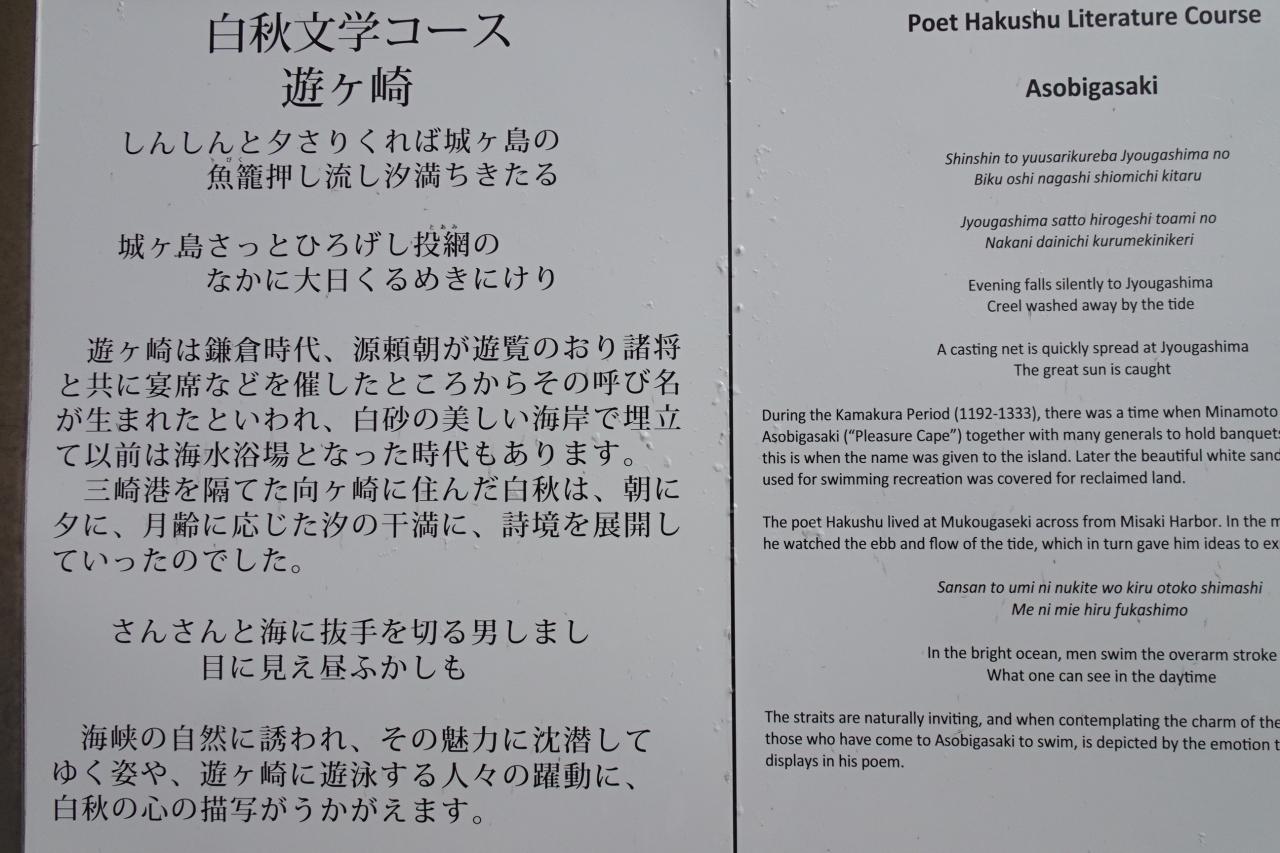 白秋文学コース
遊ヶ崎
しんしんと夕さりくれば城ヶ島の
魚籠押し流し汐満ちきたる
城ヶ島さっとひろげし投網の
なかに大日くるめきにけり
遊ヶ崎は鎌倉時代、源頼朝が遊覧のおり諸将
と共に宴席などを催したところからその呼び名
が生まれたといわれ、白砂の美しい海岸で埋立
て以前は海水浴場となった時代もあります。
三崎港を隔てた向ヶ崎に住んだ白秋は、朝に
夕に、月齢に応じた汐の干満に、詩境を展開し
ていったのでした。
さんさんと海に抜手を切る男しまし
目に見え昼ふかしも
海峡の自然に誘われ、その魅力に沈潜して
ゆく姿や、遊ヶ崎に遊泳する人々の躍動に、
白秋の心の描写がうかがえます。
Poet Hakushu Literature Course
Asobigasaki
Shinshin to yuusarikureba Jyougashima no
Biku oshi nagashi shiomichi kitaru
Jyougashima satto hirogeshi toami no
Nakani dainichi kurumekinikeri
Evening falls silently to Jyougashima
Creel washed away by the tide
A casting net is quickly spread at Jyougashima
The great sun is caught
During the Kamakura Period (1192-1333), there was a time when Minamoto
Asobigasaki (“Pleasure Cape”) together with many generals to hold banquets
this is when the name was given to the island. Later the beautiful white sand
used for swimming recreation was covered for reclaimed land.
The poet Hakushu lived at Mukougaseki across from Misaki Harbor. In the m
he watched the ebb and flow of the tide, which in turn gave him ideas to ex
Sansan to umi ni nukite wo kiru otoko shimashi
Me ni mie hiru fukashimo
In the bright ocean, men swim the overarm stroke
What one can see in the daytime
The straits are naturally inviting, and when contemplating the charm of the
those who have come to Asobigasaki to swim, is depicted by the emotion t
displays in his poem.